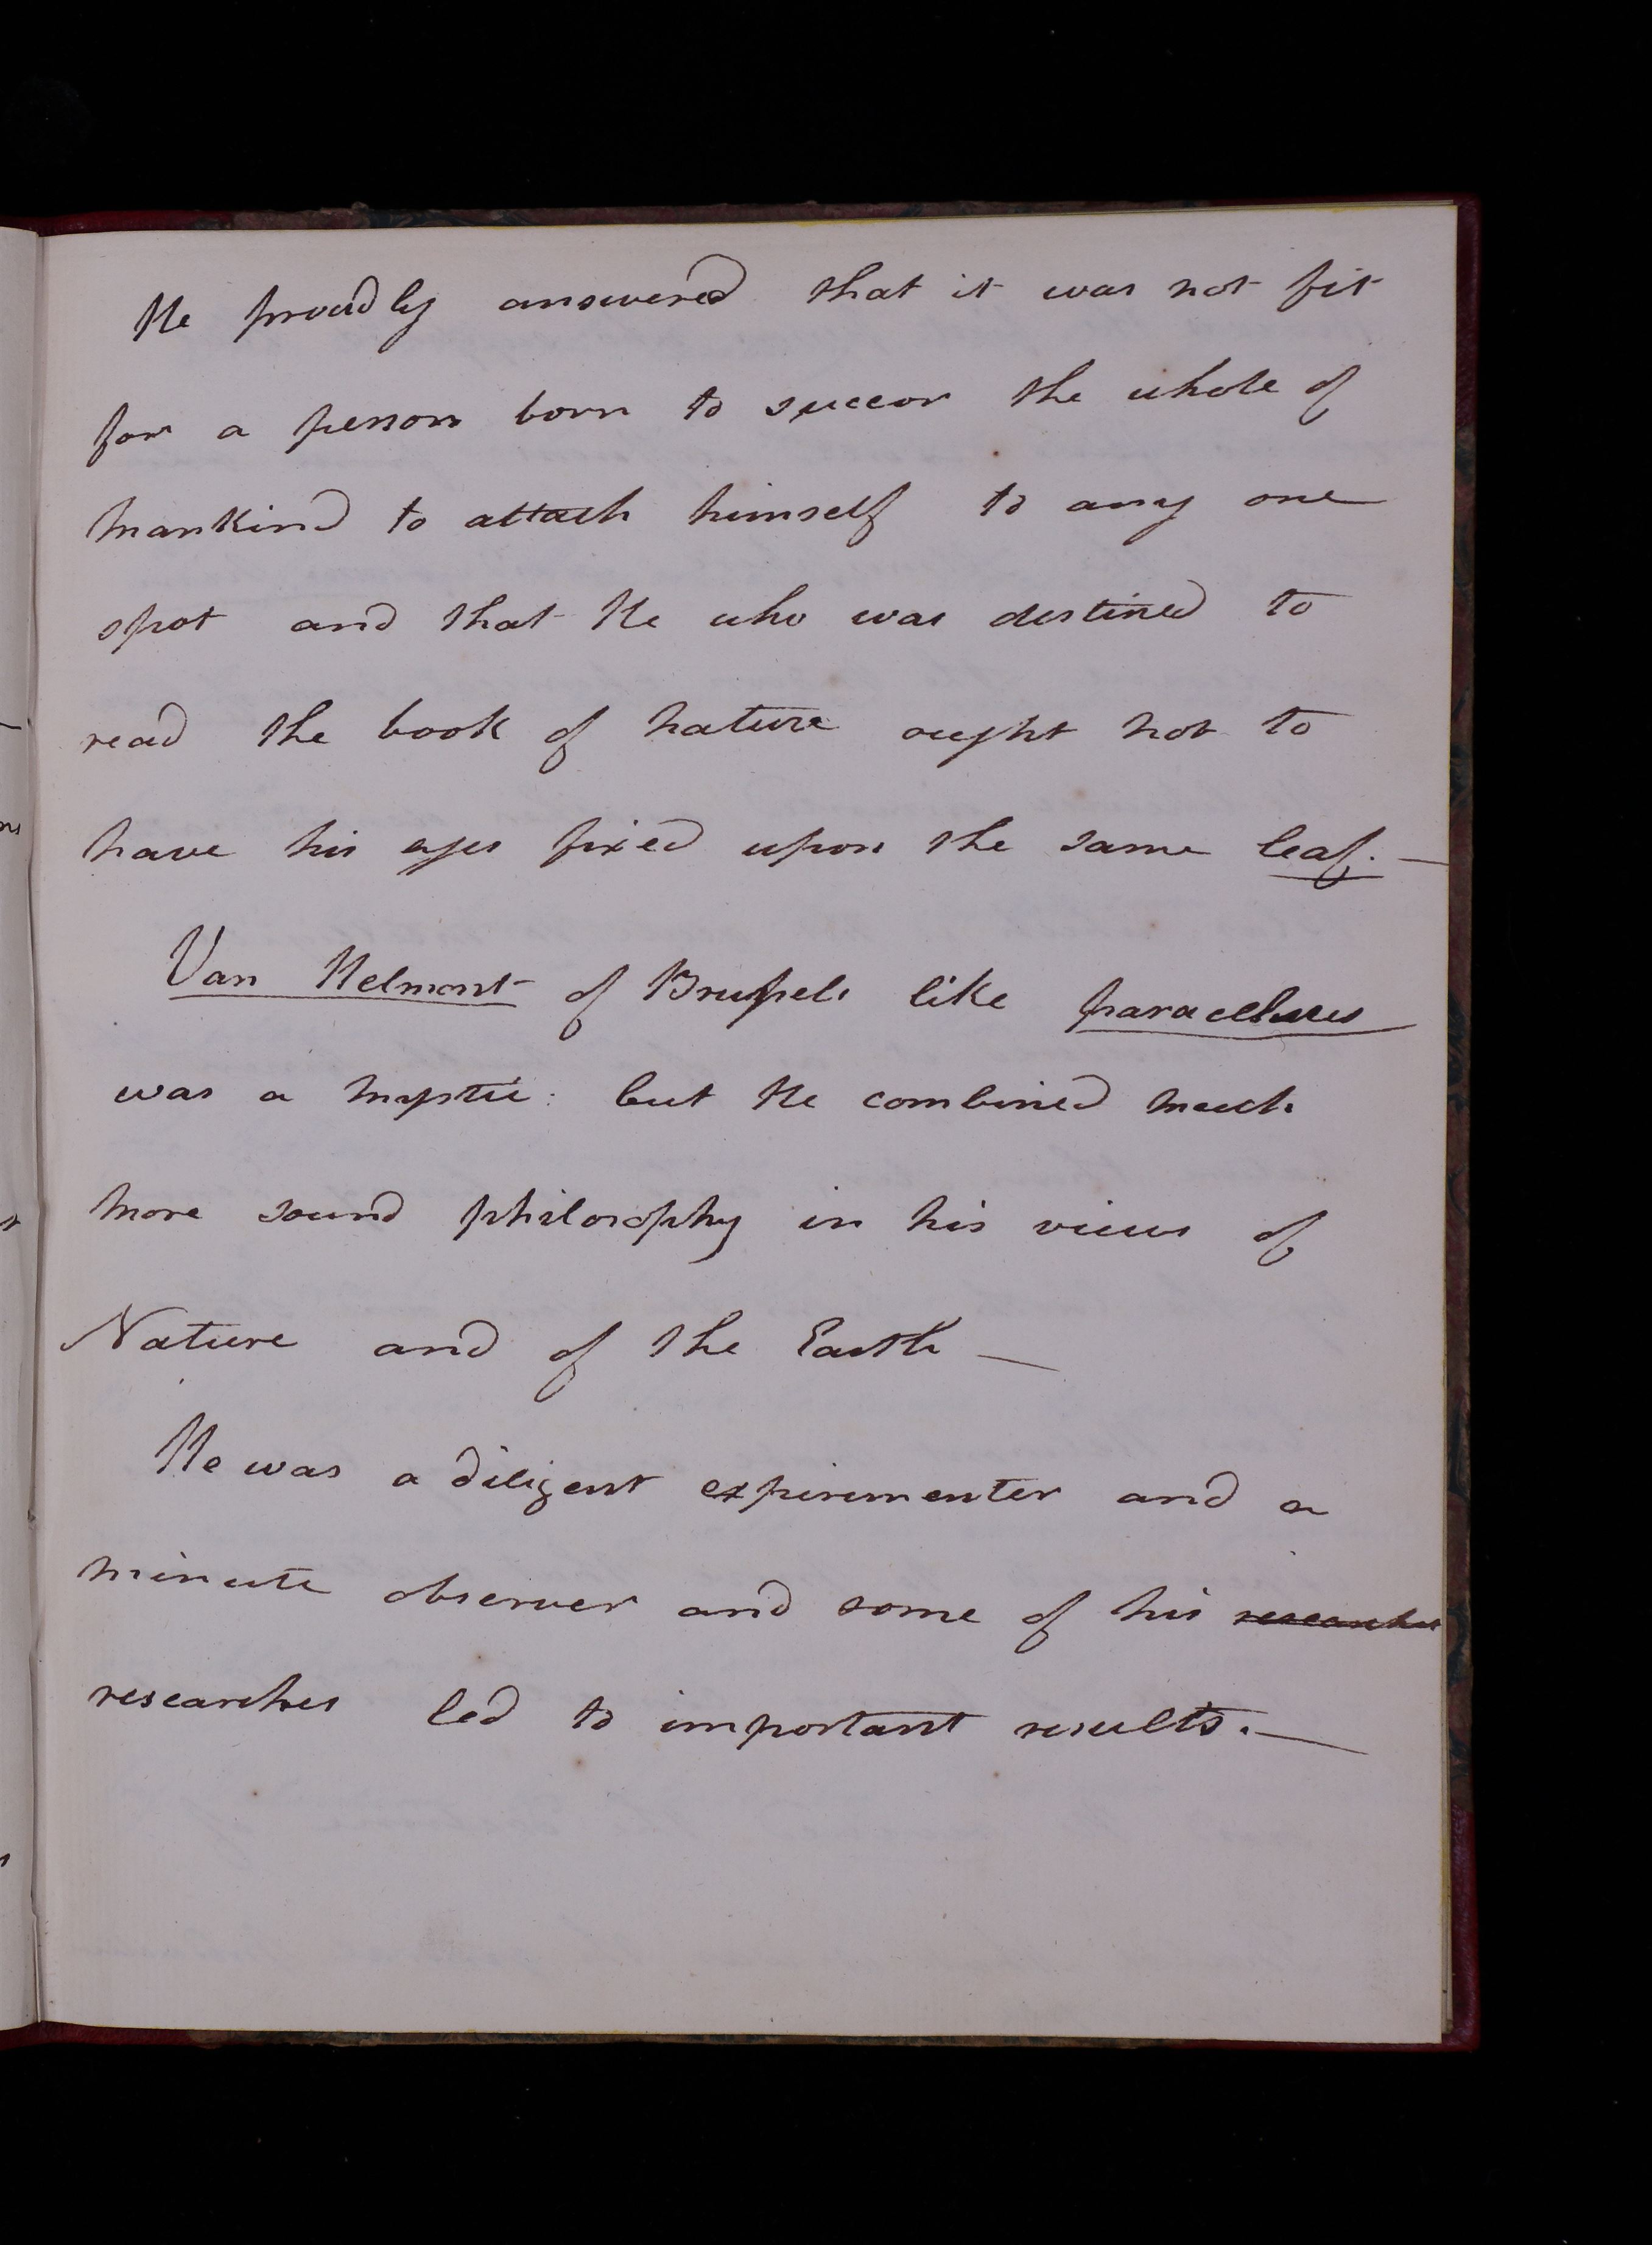 He proudly answered that it was not fit
for a person born to succor the whole of
mankind to attach himself to any one
spot and that He who was destined to
read the book of nature ought not to
have his eyes fixed upon the same leaf. —
Van Helmont of Brussels like paracelsus
was a mystic: but He combined much
more sound philosophy in his views of
Nature and of the Earth —
He was a diligent experimenter and a
minute observer and some of his researches
researches led to important results. —